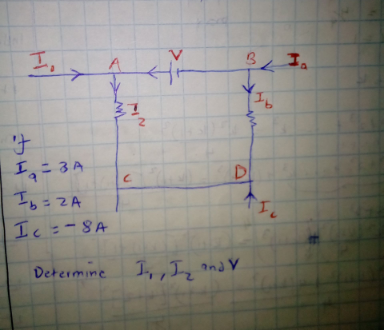 I₁ A V B Iₐ
I₂ I_b
if
Iₐ = 3A C D
I_b = 2A
I_c = -8A I_c
Determine I₁, I₂ and V